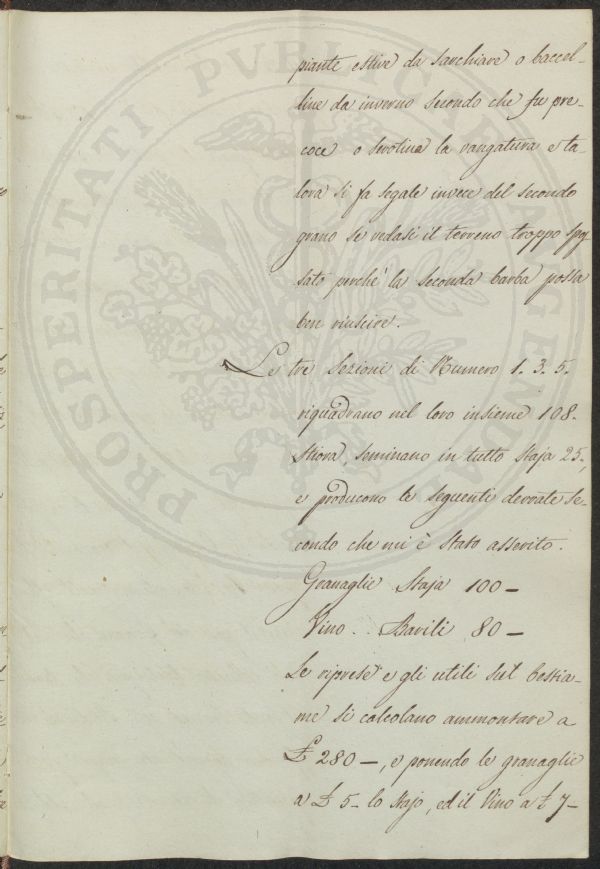 piante estive da sarchiare o baccel-
line da inverno secondo che fu pre-
coce o serotina la vangatura e ta-
lora si fa segale invece del secondo
grano se vedasi il terreno troppo spos
sato perchè la seconda barba possa
ben riuscire.
Le tre Sezioni di Numero 1. 3. 5.
riquadrano nel loro insieme 108.
Stiora, seminano in tutto Staja 25.,
e producono le seguenti derrate se-
condo che mi è Stato asserito.
Granaglie Staja 100 —
Vino . . Barili 80 —
Le riprese e gli utili sul bestia-
me si calcolano ammontare a
£ 280 —, e ponendo le granaglie
a £ 5 - lo Stajo, ed il Vino a £ 7 —
PROSPERITATI PVBLICAE AVGENDAE